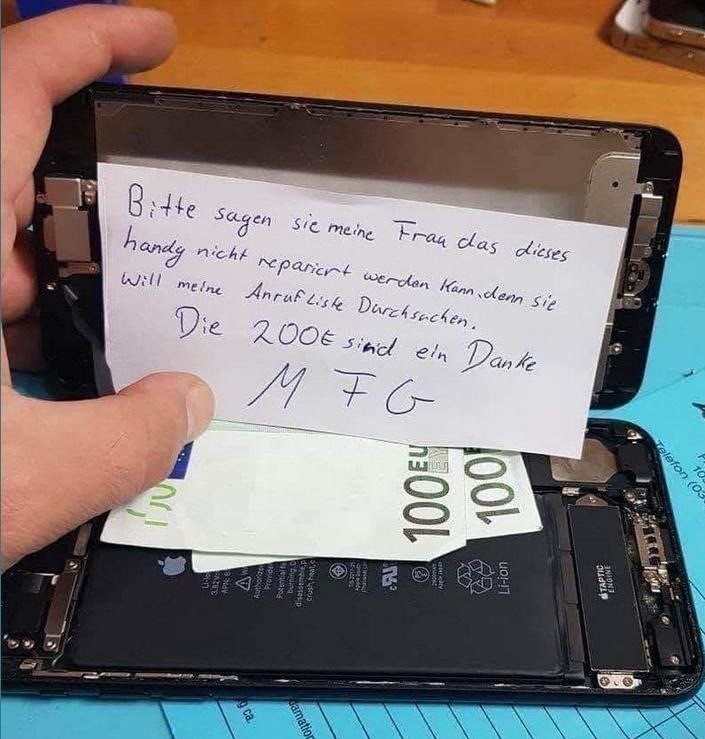 Bitte sagen sie meine Frau das dieses
handy nicht repariert werden kann, denn sie
will meine Anrufliste Durchsuchen.
Die 200€ sind ein Danke
M F G
100 EU
100
Li-ion
TAPTIC
ENGINE
Telefon (03